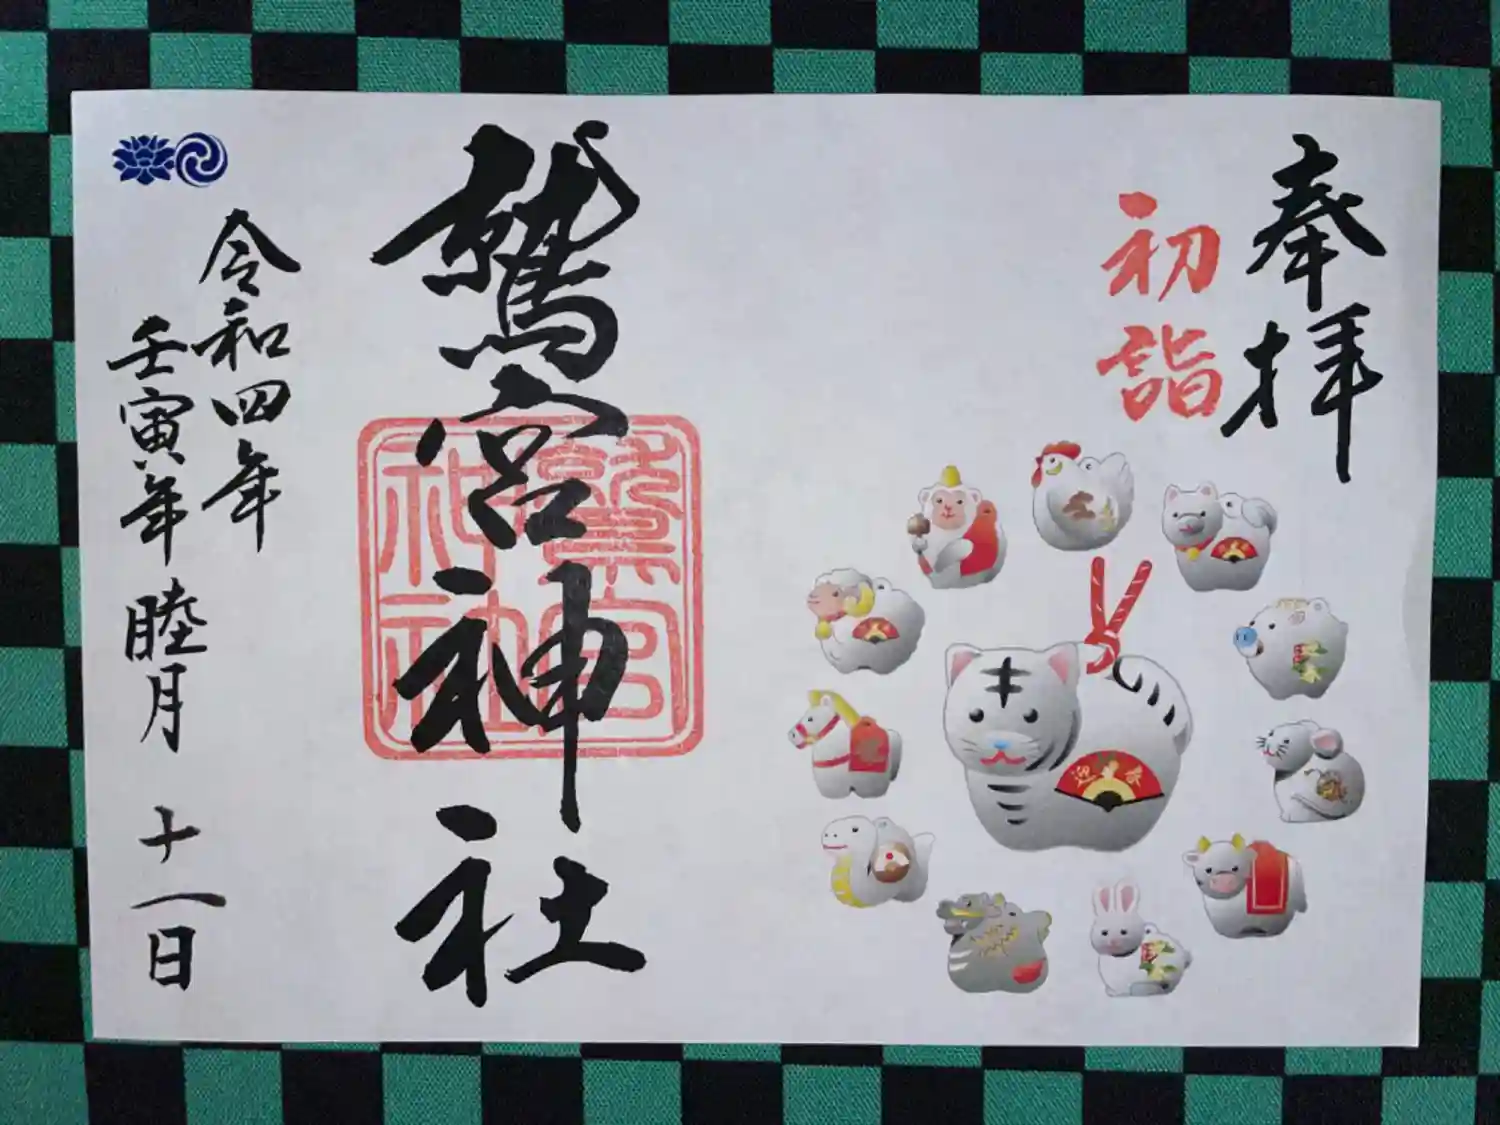 奉拝
初詣
鷲宮神社
鷲宮
神社
令和四年
壬寅年 睦月 十一日